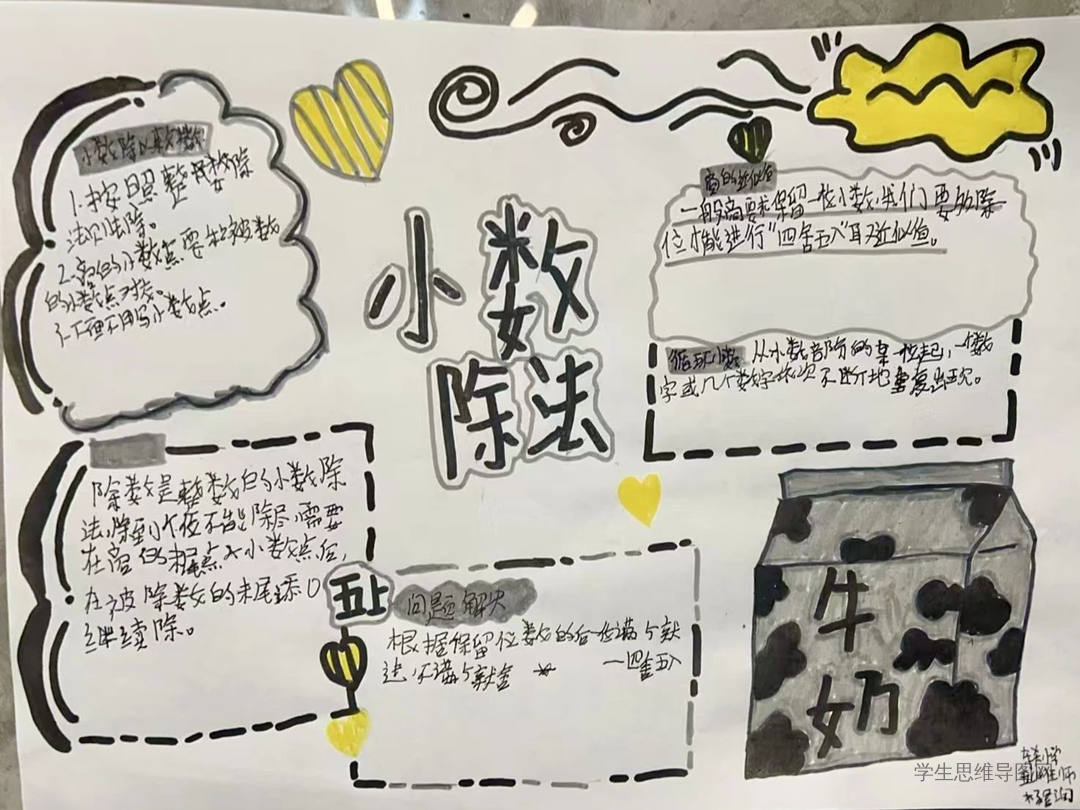 小数除以整数
1.按照整数除
法则法除。
2.商的小数点要和被数
的小数点对齐。
小数
除法
商的近似值
一般商要求保留一位小数,我们要多除
位才能进行"四舍五入"取近似值。
循环小数 从小数部阶的某一位起,一个数
字或几个数字依次不断地重复出现。
除数是整数的小数除
法,除到个位不能除尽,需要
在商的 点
在被除数的末尾添0
继续除。
五上
问题解决
根据保留位数的后一位满5就
进,不满5就舍 一四舍五入
牛
奶
学生思维导图